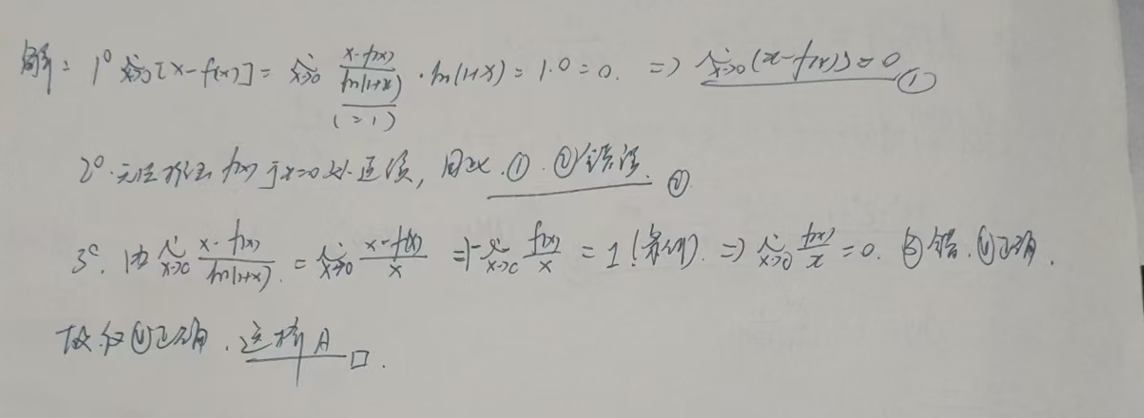 解：1° lim_{x→0} [x-f(x)] = lim_{x→0} \frac{x-f(x)}{ln(1+x)} (=1) · ln(1+x) = 1·0 = 0. ⇒ lim_{x→0} (x-f(x)) = 0 ①
2°. 无法推出 f(x) 于 x=0 处连续, 因此 ①. ②错误. ②
3°. 由 lim_{x→0} \frac{x-f(x)}{ln(1+x)} = lim_{x→0} \frac{x-f(x)}{x} ⇒ 1- lim_{x→0} \frac{f(x)}{x} = 1 (条件). ⇒ lim_{x→0} \frac{f(x)}{x} = 0. ③错. ④正确.
故仅④正确. 选择A □.